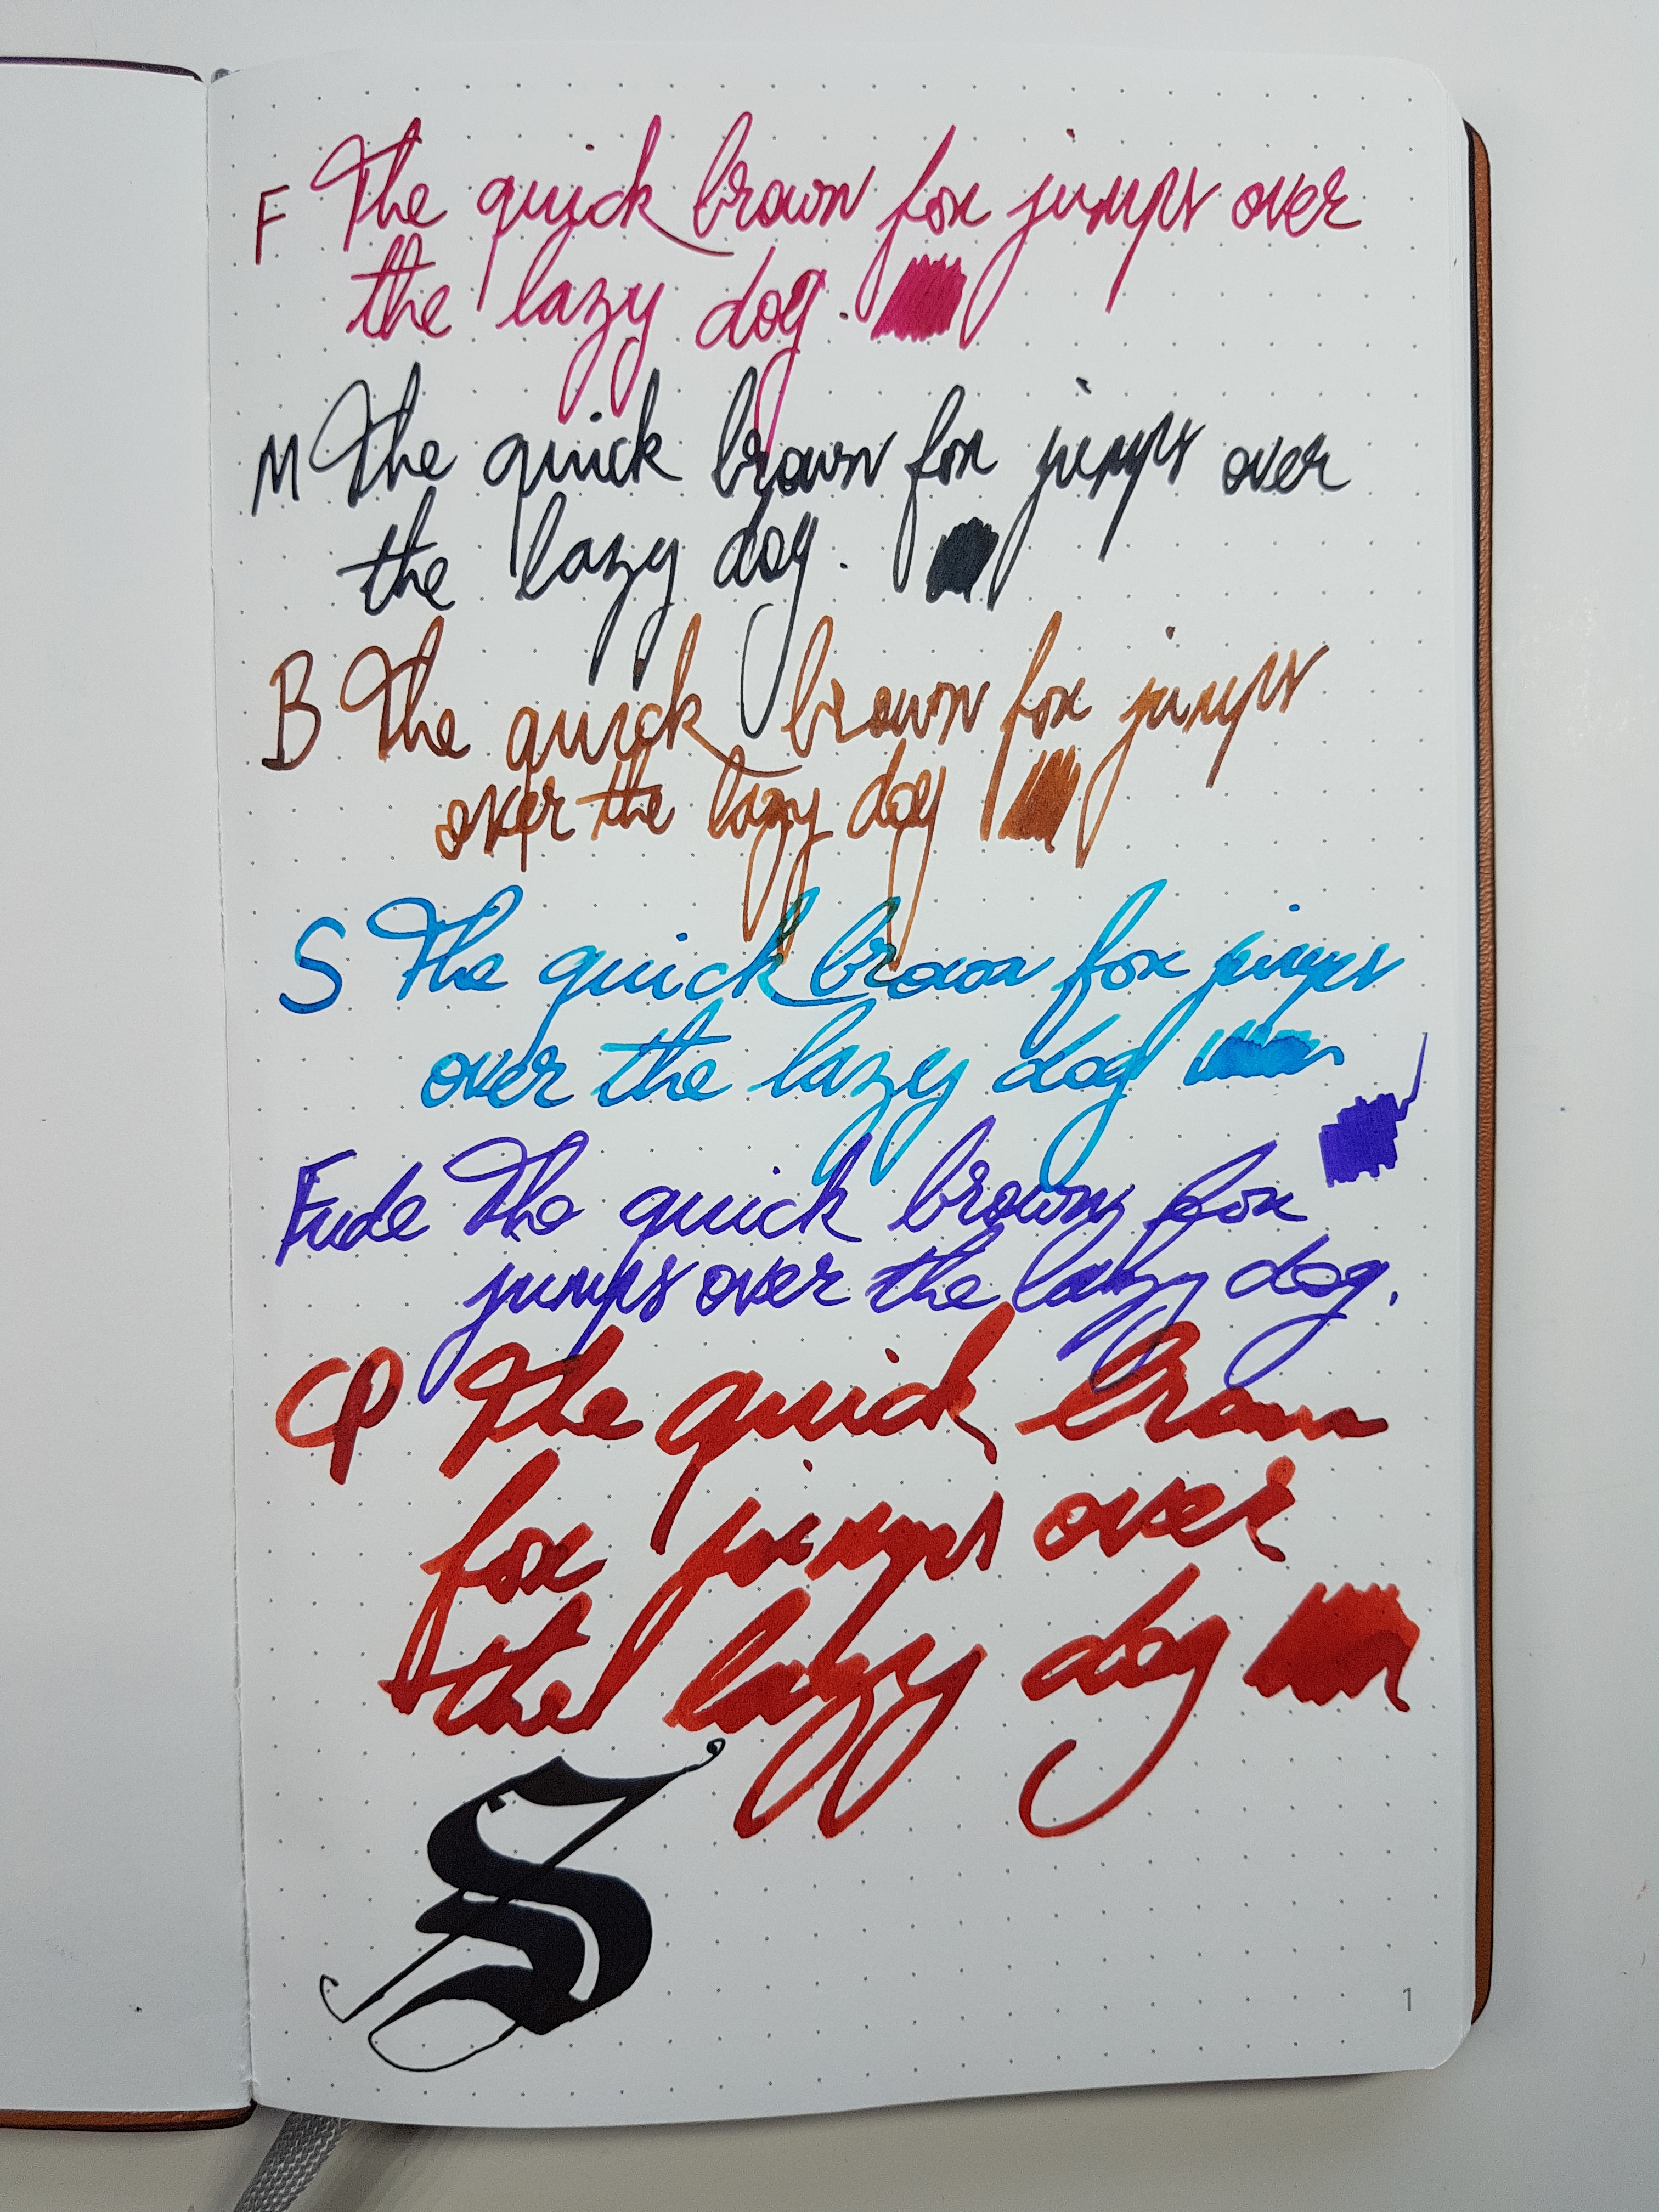 F The quick brown fox jumps over
the lazy dog.
M The quick brown fox jumps over
the lazy dog.
B The quick brown fox jumps
over the lazy dog
S The quick brown fox jumps
over the lazy dog
Fude The quick brown fox
jumps over the lazy dog.
CP The quick brown
fox jumps over
the lazy dog
S
1